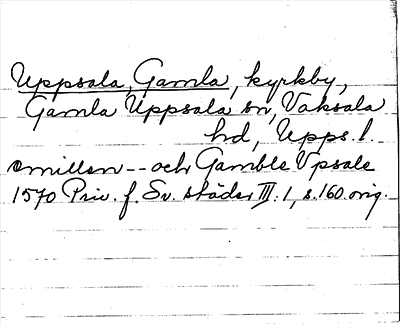 Uppsala, Gamla, kyrkby,
Gamla Uppsala sn, Vaksala
hd, Upps. l.
emillan -- och Gamble Vpsale
1570 Priv. f. Sv. städer III: 1, s. 160. orig.